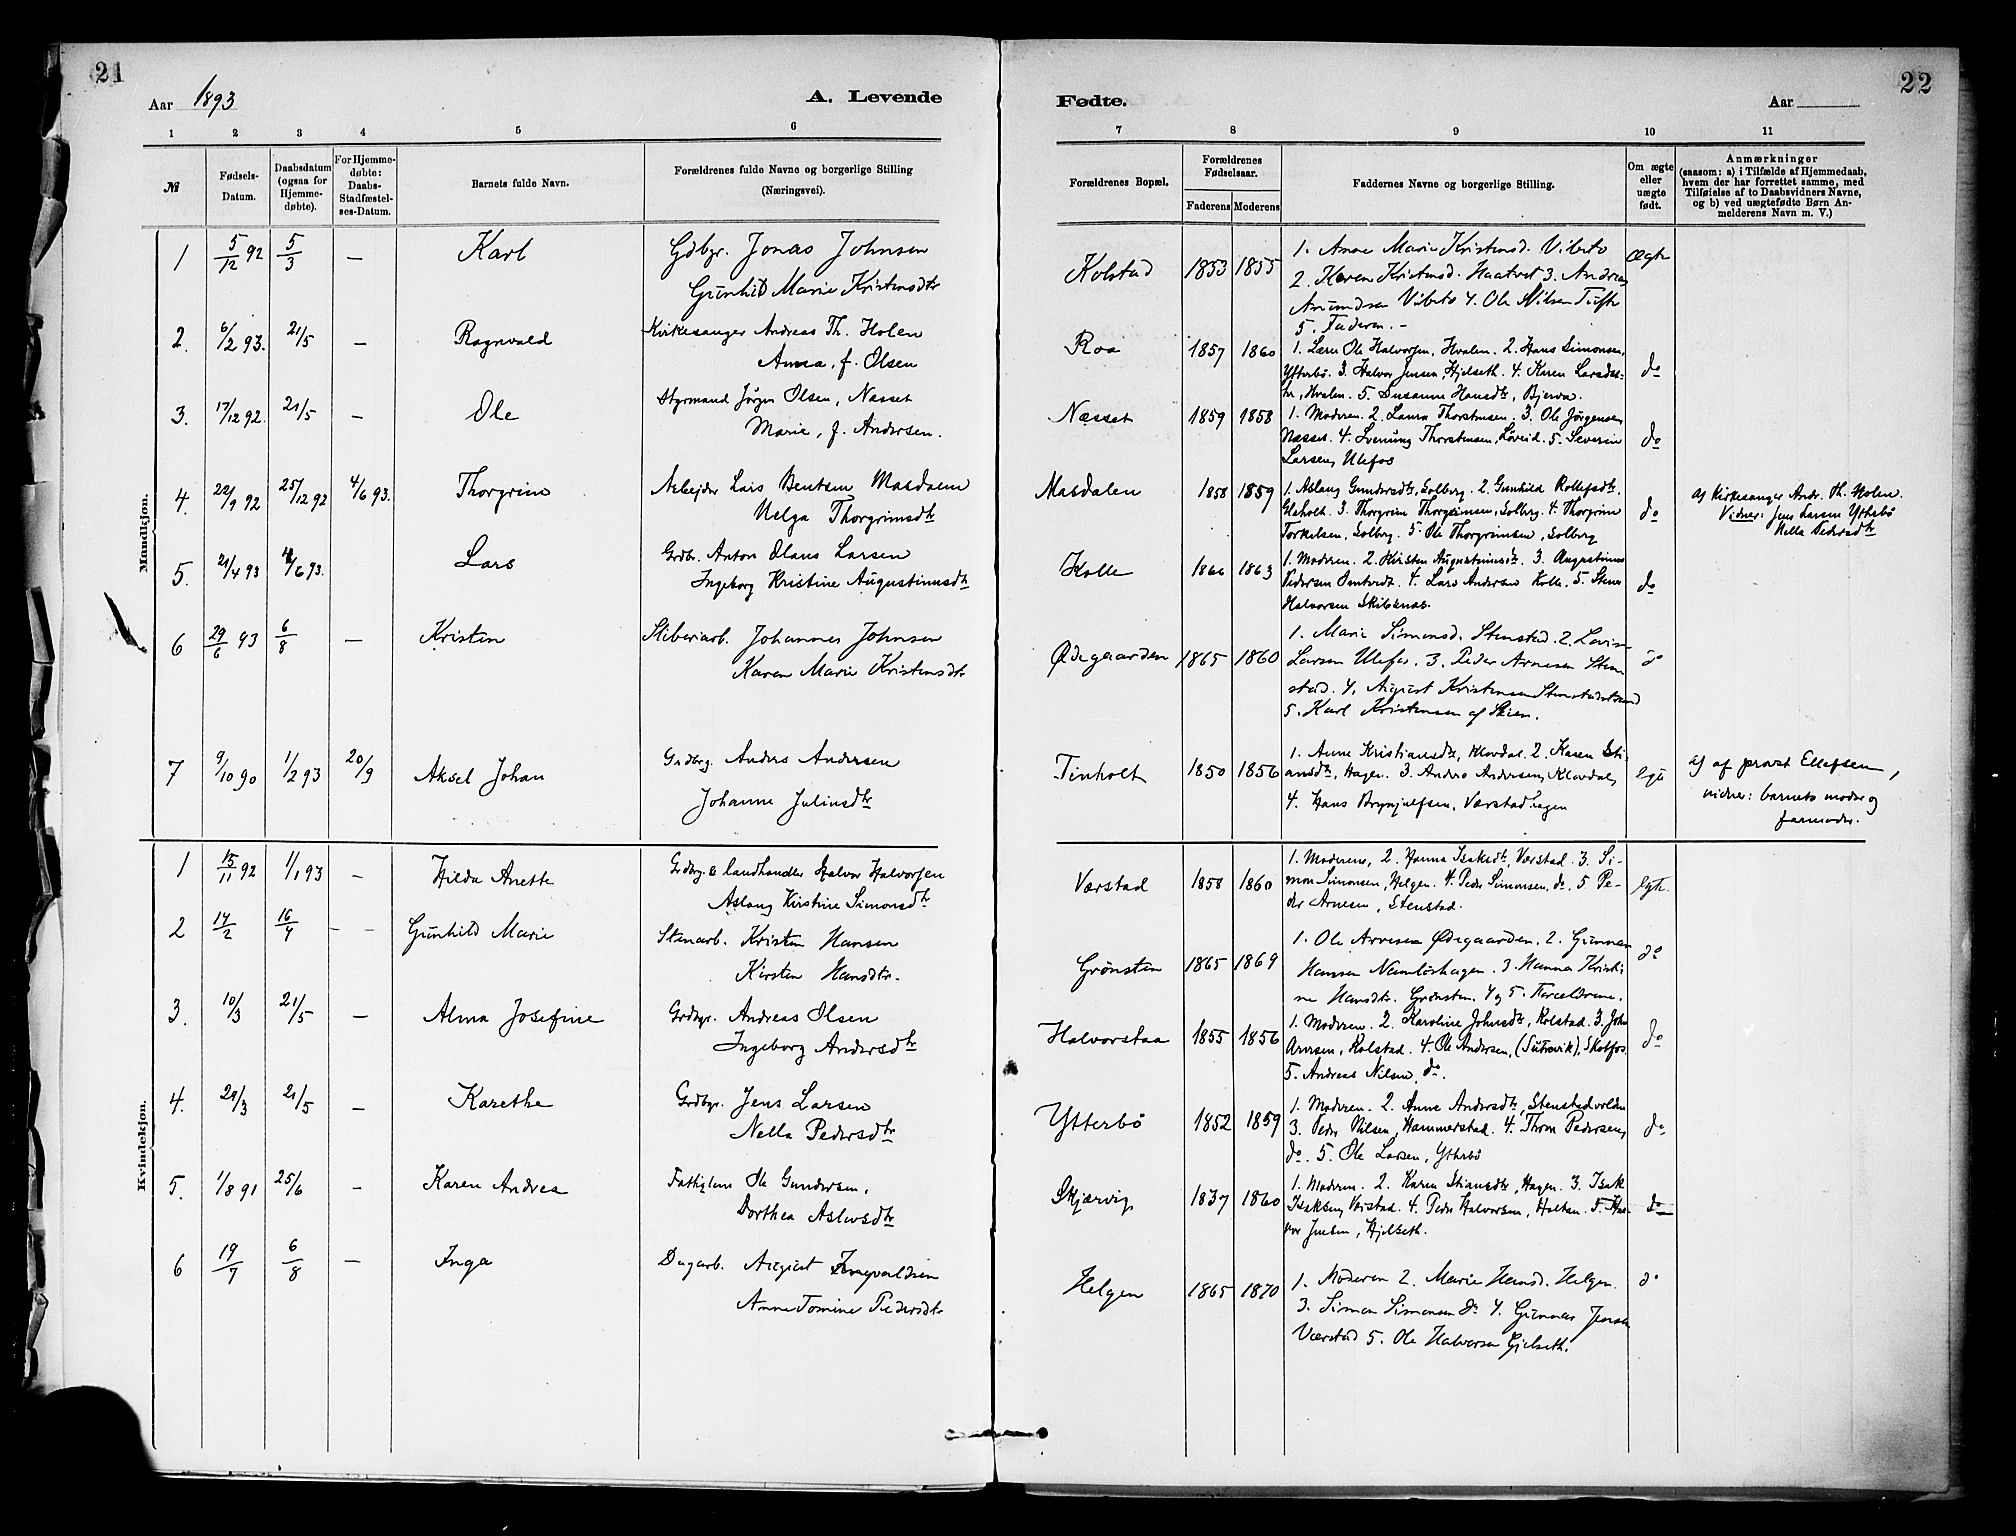 21
Aar 1893
A. Levende
1 2 3 4 5 6
№
Fødsels-Datum.
Daabsdatum (ogsaa for Hjemme-døbte).
For Hjemme-døbte: Daabs-Stadfæstel-ses-Datum.
Barnets fulde Navn.
Forældrenes fulde Navne og borgerlige Stilling (Næringsvei).
Mandkjøn.
1 5/12 92 5/3 — Karl Gdbgr. Jonas Johnsen
Gunhild Marie Kristensdtr
2. 6/2 93. 21/5 — Ragnvald Kirkesanger Andreas Th. Holen
Anna, f. Olsen
3. 17/12 92. 21/5 — Ole Styrmand Jörgen Olsen, Næsset
Marie, f. Andersen.
4. 22/9 92 25/12 92 4/6 93. Thorgrim Arbejder Lars Bentsen Masdalen
Helga Thorgrimsdtr
5. 21/4 93 4/6 93. Lars Grdbr. Anton Olaus Larsen
Ingeborg Kristine Augustinusdtr
6 29/6 93 6/8 — Kristen Sliberiarb. Johannes Johnsen
Karen Marie Kristensdtr
7 9/10 90 1/2 93 20/9 Aksel Johan Grdbrg. Anders Andersen
Johanne Juliusdtr
Kvindekjøn.
1 15/11 92 1/1 93 — Hilda Anette Grdbrg. & landhandler Halvor Halvorsen
Aslaug Kirstine Simonsdtr
2 14/2 16/4 — — Gunhild Marie Stenarb. Kristen Hansen
Kirsten Hansdtr.
3. 10/3 21/5 — Alma Josefine Grdbgr. Andreas Olsen
Ingeborg Andersdtr
4. 29/3 21/5 — Karethe Grdbgr. Jens Larsen
Nella Pedersdtr
5. 1/8 91 25/6 — Karen Andrea Fattiglem Ole Gundersen,
Dorthea Aslevsdtr
6 19/7 6/8 — Inga Dagarb. August Ingvaldsen
Anne Tomine Pedersdtr
22
Fødte.
Aar
7 8 9 10 11
Forældrenes Bopæl.
Forældrenes Fødselsaar.
Faderens Moderens
Faddernes Navne og borgerlige Stilling.
Om ægte eller uægte født.
Anmærkninger
(saasom: a) i Tilfælde af Hjemmedaab,
hvem der har forrettet samme, med
Tilføielse af to Daabsvidners Navne,
og b) ved uægtefødte Børn An-
melderens Navn m. V.)
Kolstad 1853 1855 1. Anne Marie Kristensd. Vibeto Ægte
2. Karen Kristensd. Haatvet 3. Andreas
Amundsen Vibeto 4. Ole Nilsen Tufte
5. Faderen. -
Roa 1857 1860 1. Lærer Ole Halvorsen, Hvalen. 2. Hans Simonsen,
Ytterbö. 3. Halvor Jensen, Hjelseth. 4. Karen Larsdat- do
ter, Hvalen. 5. Susanne Hansdtr, Bjerva.
Næsset 1859 1858 1. Moderen. 2. Laura Thorstensen. 3. Ole Jörgensen
Næsset. 4. Lvenung Thorstensen, Löveid. 5. Severin do
Larsen, Ulefos
Masdalen 1858 1859 1. Aslaug Gundersdtr, Solberg. 2. Gunhild Rollefsdtr,
Gleholt. 3. Thorgrim Thorgrimsen, Solberg. 4. Thorgrim do
Torkelsen, Solberg. 5. Ole Thorgrimsen, Solberg
af Kirkesanger Andr. Th. Holen.
Vidner: Jens Larsen Ytterbö
Nella Pedersdtr
Kolle 1866 1863 1. Moderen. 2. Kirsten Augustinusdtr. 3. Augustinus
Pedersen Omtvedt. 4. Lars Andersen Kolle. 5. Stener do
Halvorsen Skilsnæs.
Ødegaarden 1865 1860 1. Marie Simonsd. Stenstad. 2. Lovise
Larsen Ulefos. 3. Peder Arnesen Sten- do
stad. 4. August Kristensen Stenstadstrand
5. Karl Kristensen af Skien.
Tinholt 1850 1856 1. Anne Kristiansdtr, Klovdal. 2. Karen Sti-
ansdtr, Hagen. 3. Anders Andersen, Klovdal, egte
4. Hans Brynjulfsen, Værstadhagen
af af provst Ellefsen,
vidner: barnets moder og
farmoder.
Værstad 1858 1860 1. Moderen, 2. Hanna Isaksdtr, Værstad. 3. Si-
mon Simonsen, Helgen. 4. Peder Simonsen, do. 5 Pe- egte.
der Arnesen, Stenstad.
Grönsten 1865 1869 1. Ole Arvesen Ødegaarden. 2. Gunnar do
Hansen Namlöshagen. 3. Hanna Kristi-
ne Hansdtr. Grönsten. 4 og 5. Forældrene.
Halvorstaa 1855 1856 1. Moderen. 2. Karoline Johnsdtr, Kolstad. 3. John
Arvesen, Kolstad. 4. Ole Andersen, (Sutrevik), Skotfos. do
5. Andreas Nilsen, do.
Ytterbö 1852 1859 1. Moderen. 2. Anne Andersdtr, Stenstadvolden
3. Peder Nilsen, Hammerstad. 4. Thom Pedersen, do
do. 5. Ole Larsen, Ytterbö
Skjærvig 1837 1860 1. Moderen. 2. Karen Stiansdtr, Hagen. 3. Isak
Isaksen, Værstad. 4. Peder Halvorsen, Holtan. 5. Hal- do
vor Jensen, Hjelseth.
Helgen 1865 1870 1. Moderen 2. Marie Hansd. Helgen. do
3. Simon Simonsen do 4. Gunnar Jensen
Værstad 5. Ole Halvorsen Gjelseth.